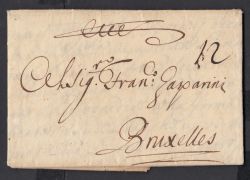 12
Al Sig.ro Fran.o Gaparini
Bruxelles